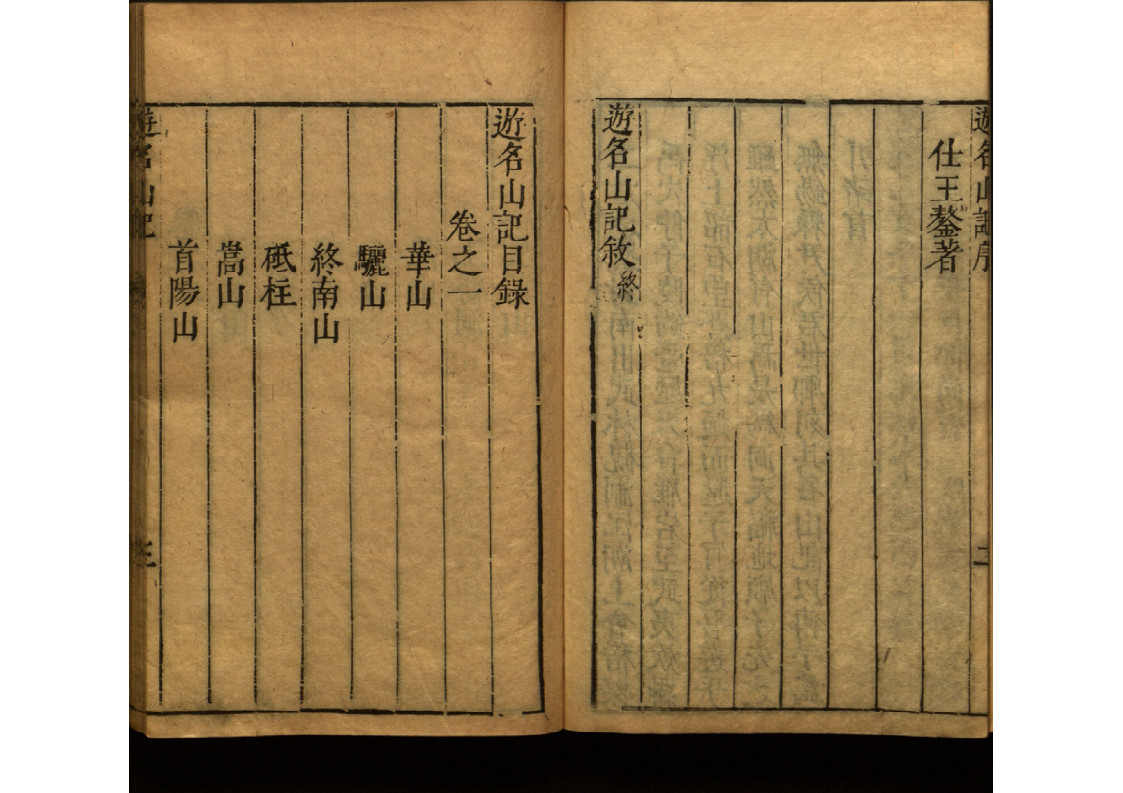 遊名山記序
二
仕王鏊著
遊名山記敘終
遊名山記目錄
卷之一
華山
驪山
終南山
砥柱
嵩山
首陽山
遊名山記